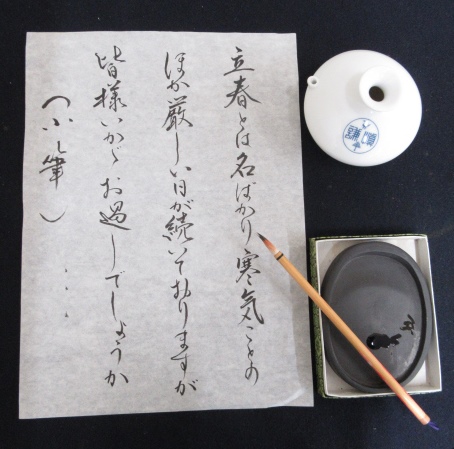 立春とは名ばかり寒気ことの
ほか厳しい日が続いておりますが
皆様いかがお過しでしょうか
（小筆）